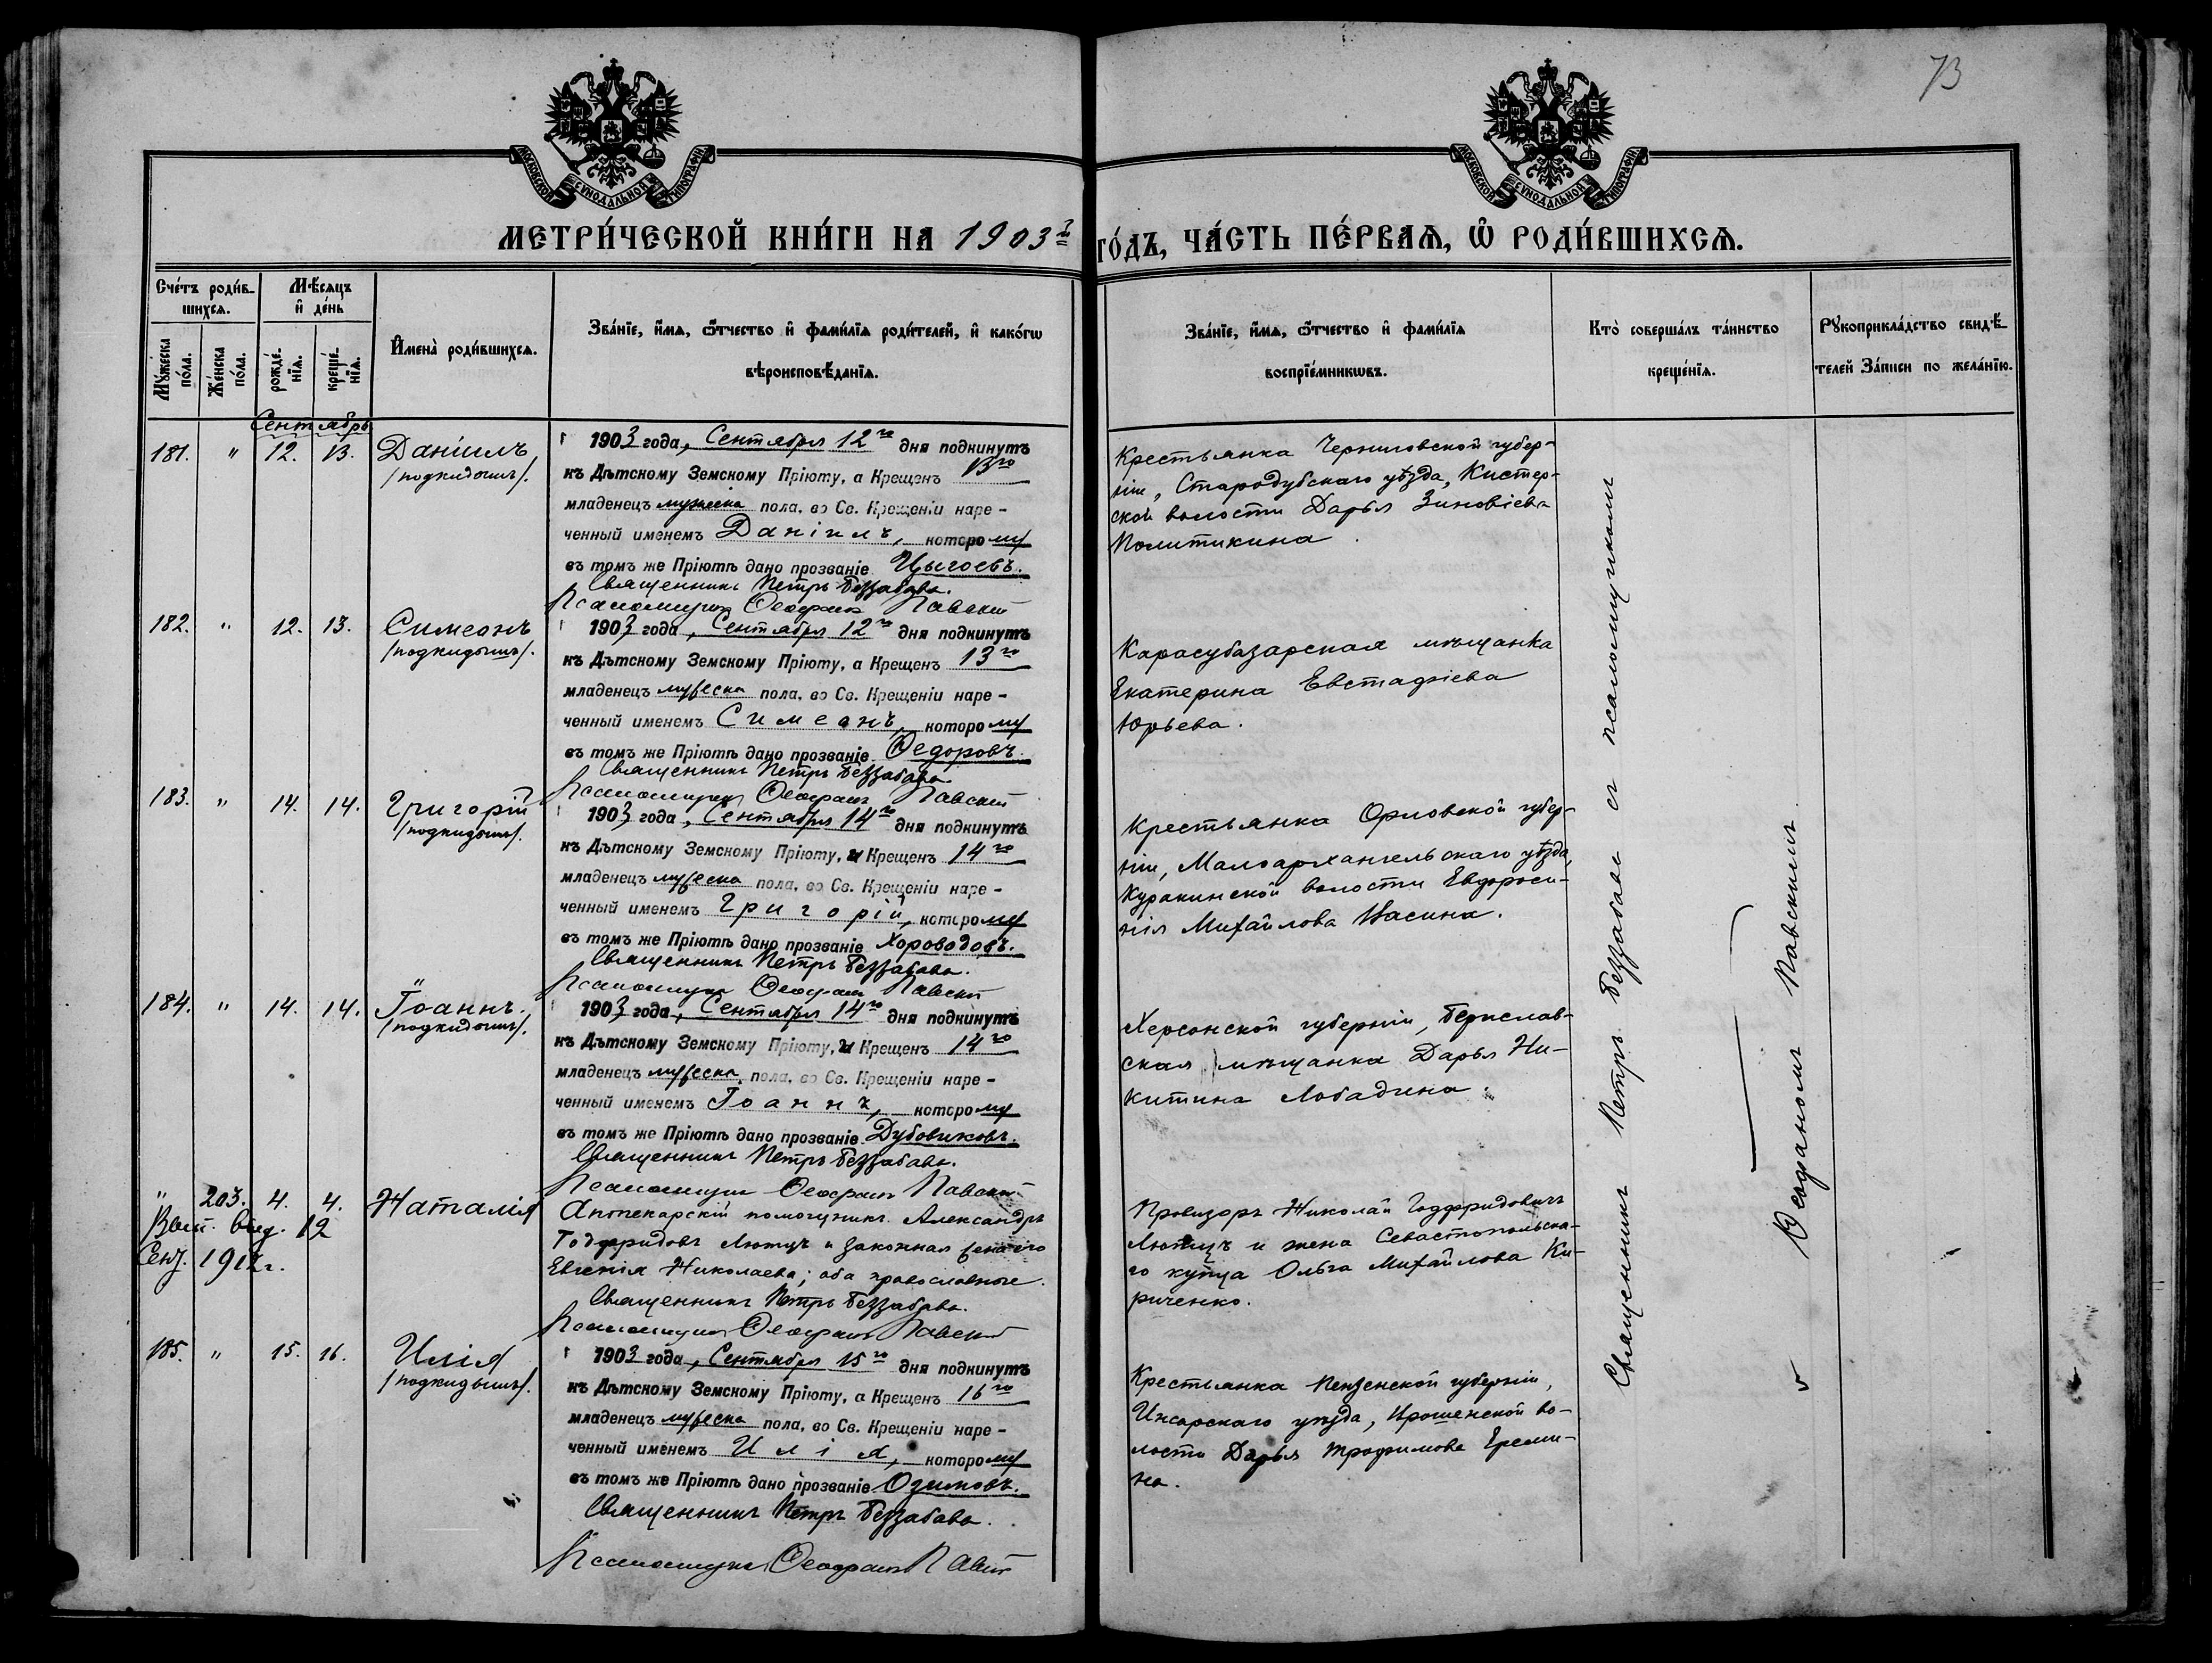 73
МОСКОВСКОЙ СѴНОДАЛЬНОЙ ТИПОГРАФІИ
МОСКОВСКОЙ СѴНОДАЛЬНОЙ ТИПОГРАФІИ
МЕТРИ́ЧЕСКОЙ КНИ́ГИ НА 1903й ГО́ДЪ, ЧА́СТЬ ПЕ́РВАѦ, Ѡ҆ РОДИ́ВШИХСѦ.
Сче́тъ роди́в-
шихсѧ.
Мꙋ́жеска по́ла.
Же́нска по́ла.
Мѣ́сѧцъ
и҆ де́нь
рожде́-
нїѧ.
креще́-
нїѧ.
И҆мена̀ роди́вшихсѧ.
Зва́нїе, и҆́мѧ, ѻ҆́тчество и҆ фами́лїѧ роди́телей, и҆ како́гѡ
вѣроисповѣ́данїѧ.
Зва́нїе, и҆́мѧ, ѻ҆́тчество и҆ фами́лїѧ
воспрїе́мникѡвъ.
Кто̀ соверша́лъ та́инство
креще́нїѧ.
Рꙋкоприкла́дство свидѣ́-
телей за́писи по жела́нїю.
Сентябрь
181. " 12. 13. Даніилъ,
/подкидышъ/.
1903 года, Сентября 12го дня подкинутъ
къ Дѣтскому Земскому Пріюту, а Крещенъ 13го
младенецъ мужеска пола, во Св. Крещеніи наре-
ченный именемъ Даніилъ, которому
въ томъ же Пріютѣ дано прозваніе Цыгоевъ.
Священникъ Петръ Беззабава.
Псаломщикъ Ѳеофанъ Павскій
Крестьянка Черниговской губер-
ніи, Стародубскаго уѣзда, Кистер-
ской волости Дарья Зиновіева
Политикина.
182. " 12. 13. Симеонъ
/подкидышъ/.
1903 года, Сентября 12го дня подкинутъ
къ Дѣтскому Земскому Пріюту, а Крещенъ 13го
младенецъ мужеска пола, во Св. Крещеніи наре-
ченный именемъ Симеонъ, которому
въ томъ же Пріютѣ дано прозваніе Ѳедоровъ.
Священникъ Петръ Беззабава.
Псаломщикъ Ѳеофанъ Павскій
Карасубазарская мѣщанка
Екатерина Евстафіева
Юрьева.
183. " 14. 14. Григорій
/подкидышъ/.
1903 года, Сентября 14го дня подкинутъ
къ Дѣтскому Земскому Пріюту, и Крещенъ 14го
младенецъ мужеска пола, во Св. Крещеніи наре-
ченный именемъ Григорій, которому
въ томъ же Пріютѣ дано прозваніе Хороводовъ.
Священникъ Петръ Беззабава.
Псаломщикъ Ѳеофанъ Павскій
Крестьянка Орловской губер-
ніи, Малоархангельскаго уѣзда,
Куракинской волости Евфроси-
нія Михайлова
184. " 14. 14. Іоаннъ.
/подкидышъ/.
1903 года, Сентября 14го дня подкинутъ
къ Дѣтскому Земскому Пріюту, и Крещенъ 14го
младенецъ мужеска пола, во Св. Крещеніи наре-
ченный именемъ Іоаннъ, которому
въ томъ же Пріютѣ дано прозваніе Дубовиковъ.
Священникъ Петръ Беззабава.
Псаломщикъ Ѳеофанъ Павскій
Херсонской губерніи, Берислав-
ская мѣщанка Дарья Ни-
китина Лобадина.
" 203. 4. 4. Наталія
12
Сен. 1912 г.
Аптекарскій помощникъ Александръ
Годфридовъ Лютцъ и законная жена его
Евгенія Николаева; оба православные.
Священникъ Петръ Беззабава.
Псаломщикъ Ѳеофанъ Павскій
Провизоръ Николай Годфридовичъ
Лютцъ и жена Севастопольска-
го купца Ольга Михайлова Ки-
риченко.
185. " 15. 16. Илія
/подкидышъ/.
1903 года, Сентября 15го дня подкинутъ
къ Дѣтскому Земскому Пріюту, а Крещенъ 16го
младенецъ мужеска пола, во Св. Крещеніи наре-
ченный именемъ Илія, которому
въ томъ же Пріютѣ дано прозваніе Озимовъ.
Священникъ Петръ Беззабава.
Псаломщикъ Ѳеофанъ Павскій
Крестьянка Пензенской губерніи,
Инсарскаго уѣзда, во-
лости Дарья Трофимова Ереми-
на.
Священникъ Петръ Беззабава съ псаломщикомъ
Ѳеофаномъ Павскимъ